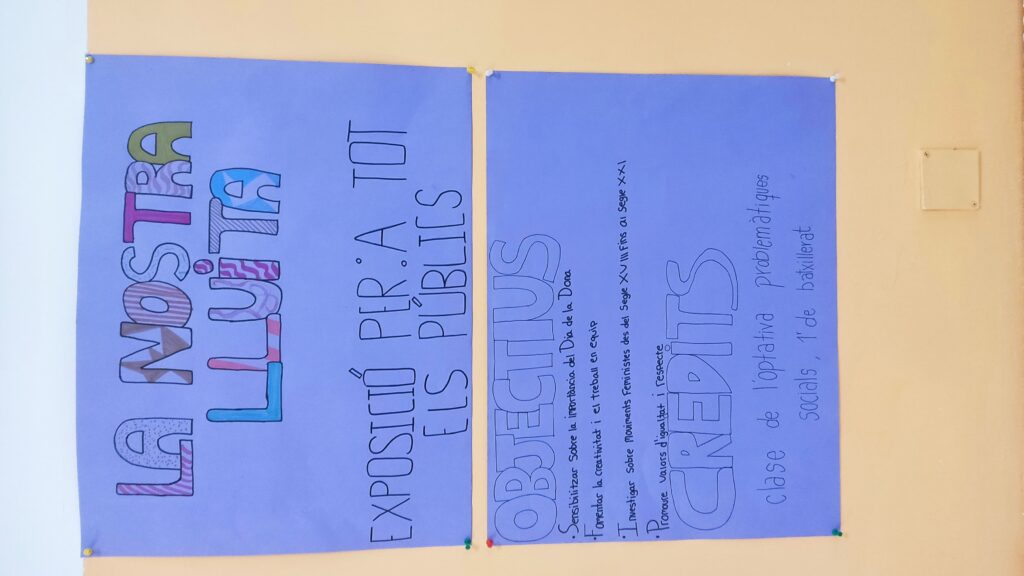 LA MOSTRA
LLUITA
EXPOSICIÓ PER:A TOT
ELS PÚBLICS
OBJECTIUS
•Sensibilitzar sobre la importància del Dia de la Dona
•Fomentar la creativitat i el treball en equip
•Investigar sobre moviments feministes des del segle XVIII fins al segle XXI
•Promoure valors d'igualtat i respecte
CRÈDITS
clase de l'optativa problemàtiques
socials, 1r de batxillerat